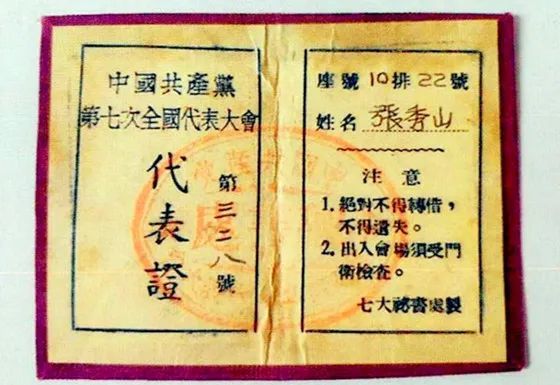 中國共產黨
第七次全國代表大會
代表證
第三二八號
座號10排22號
姓名 張秀山
注意
1. 絕對不得轉借，
不得遺失。
2. 出入會場須受門
衛檢查。
七大祕書處製